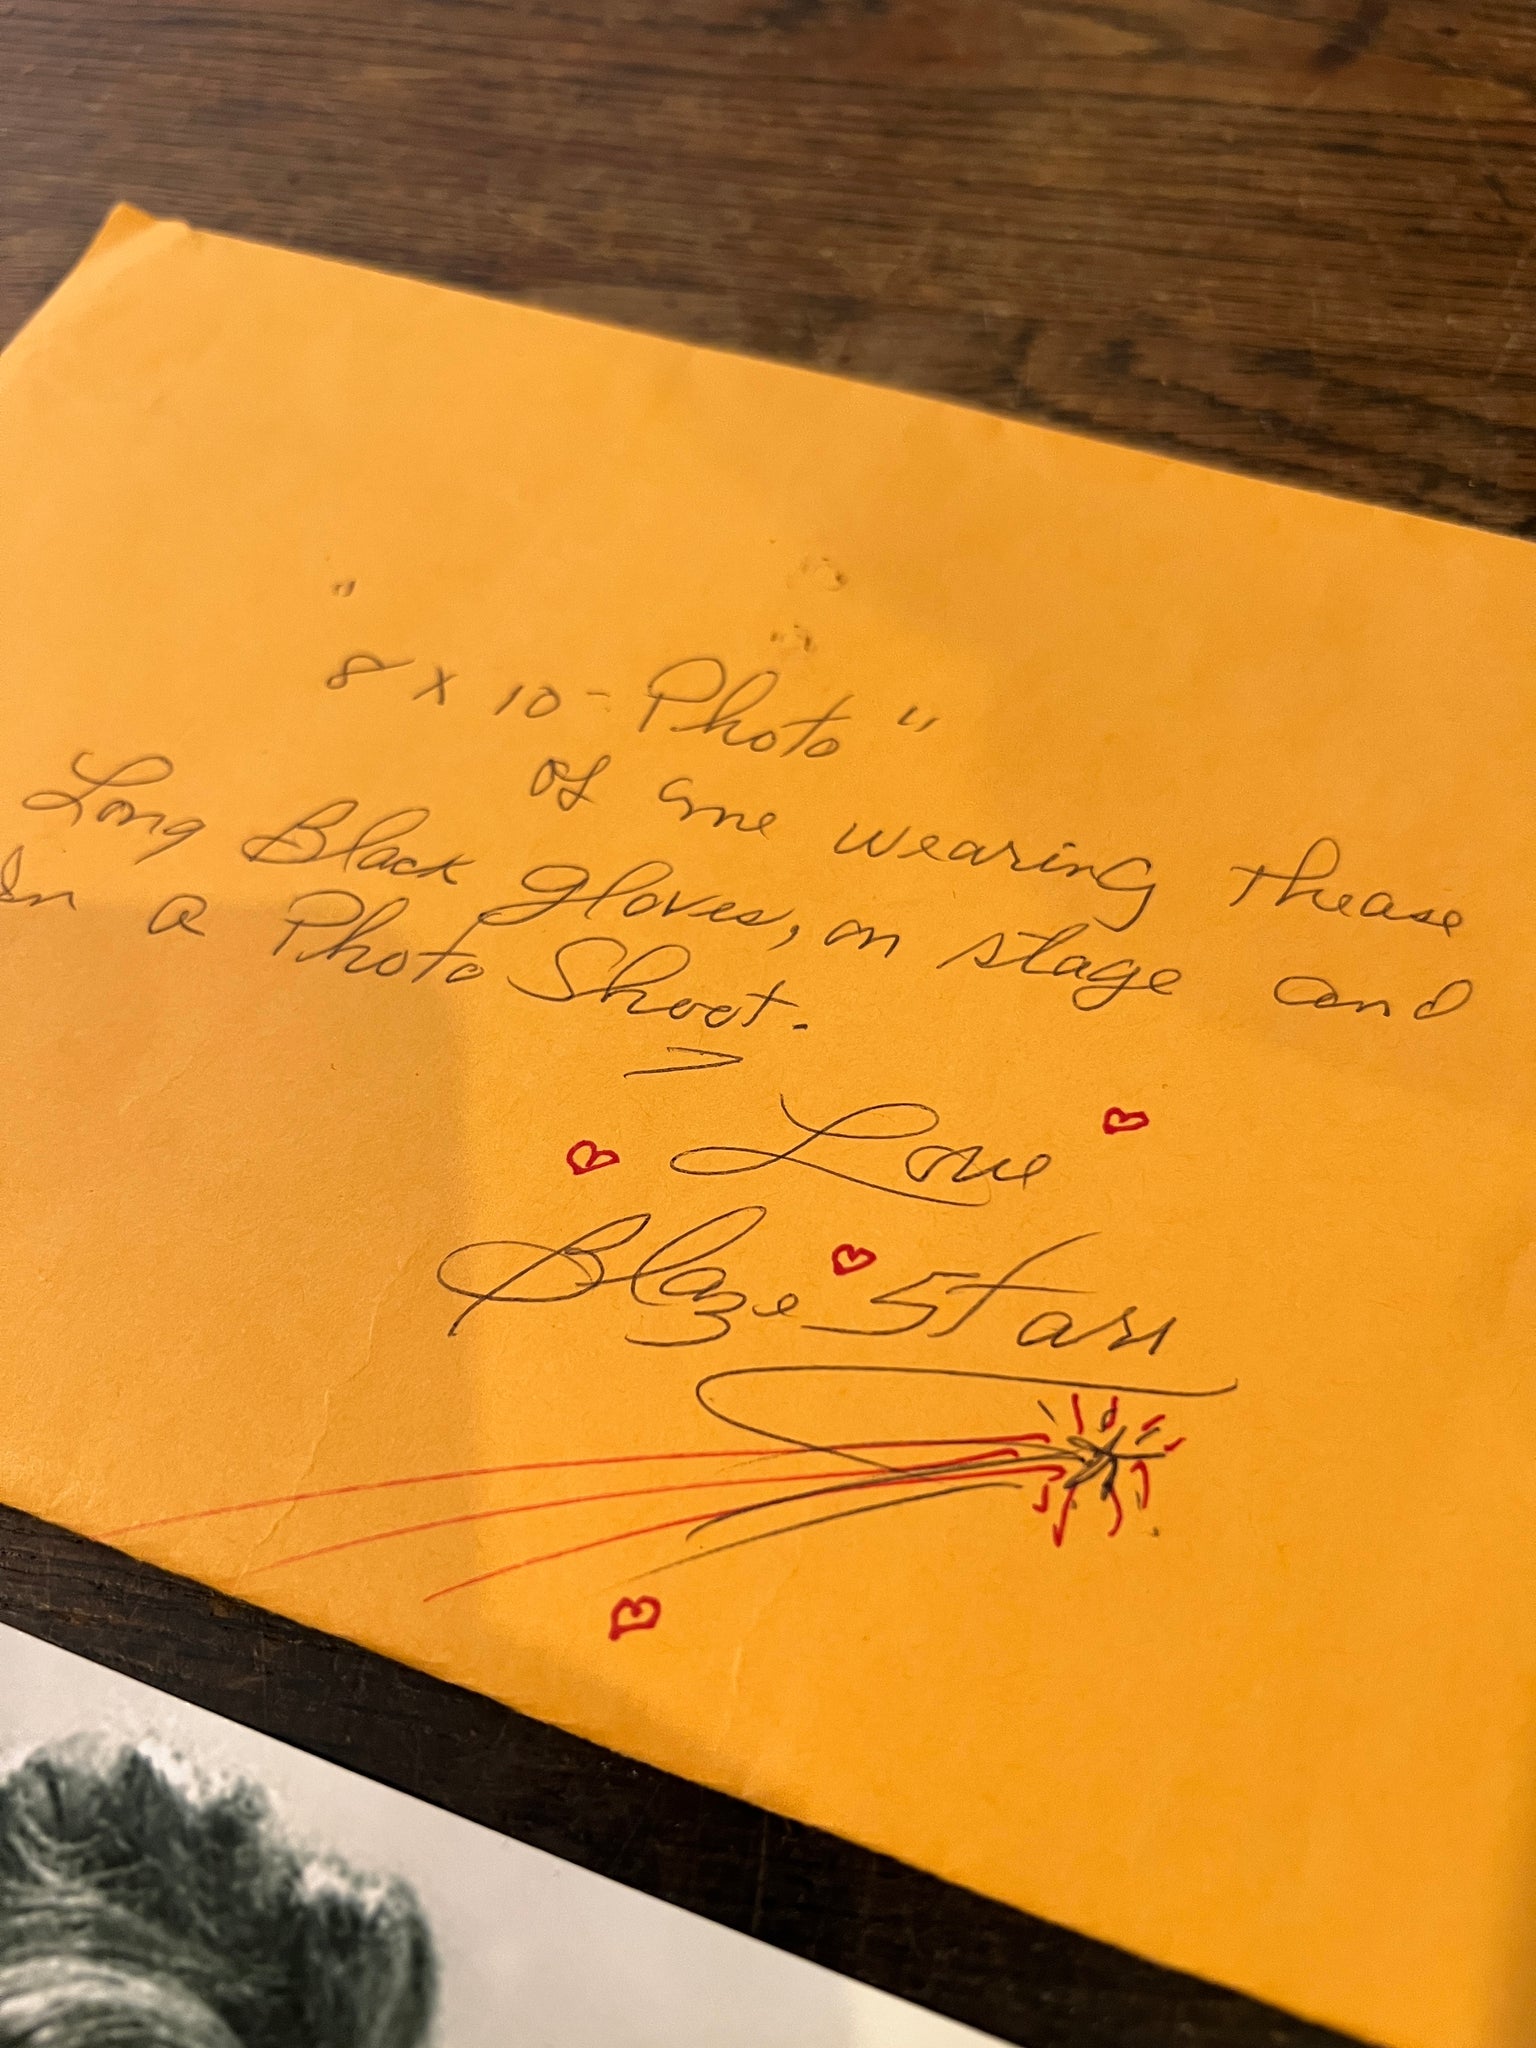 "
8 x 10 - Photo"
of me wearing thease
Long Black gloves, on stage and
In a Photo Shoot.
Love
Blaze Starr